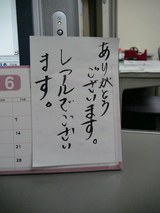 ありがとう
ございます。
レアルでござい
ます。
6
7
14
21
28